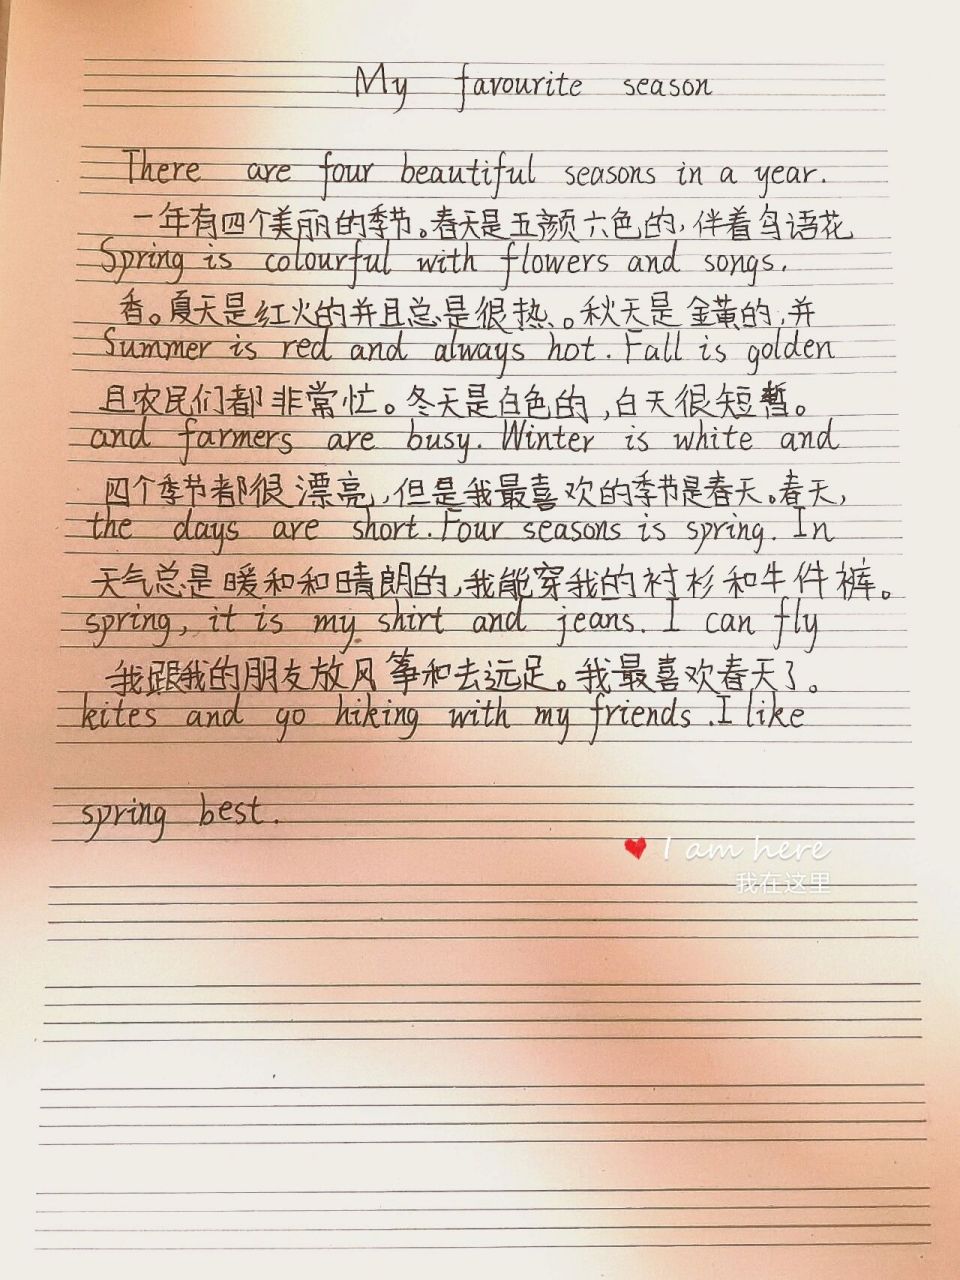 My favourite season
There are four beautiful seasons in a year.
一年有四个美丽的季节。春天是五颜六色的,伴着鸟语花
Spring is colourful with flowers and songs.
香。夏天是红火的并且总是很热。秋天是金黄的,并
Summer is red and always hot. Fall is golden
且农民们都非常忙。冬天是白色的,白天很短暂。
and farmers are busy. Winter is white and
四个季节都很漂亮,但是我最喜欢的季节是春天。春天,
the days are short. Four seasons is spring. In
天气总是暖和和晴朗的,我能穿我的衬衫和牛仔裤。
spring, it is my shirt and jeans. I can fly
我跟我的朋友放风筝和去远足。我最喜欢春天了。
kites and go hiking with my friends. I like
spring best.
I am here
我在这里